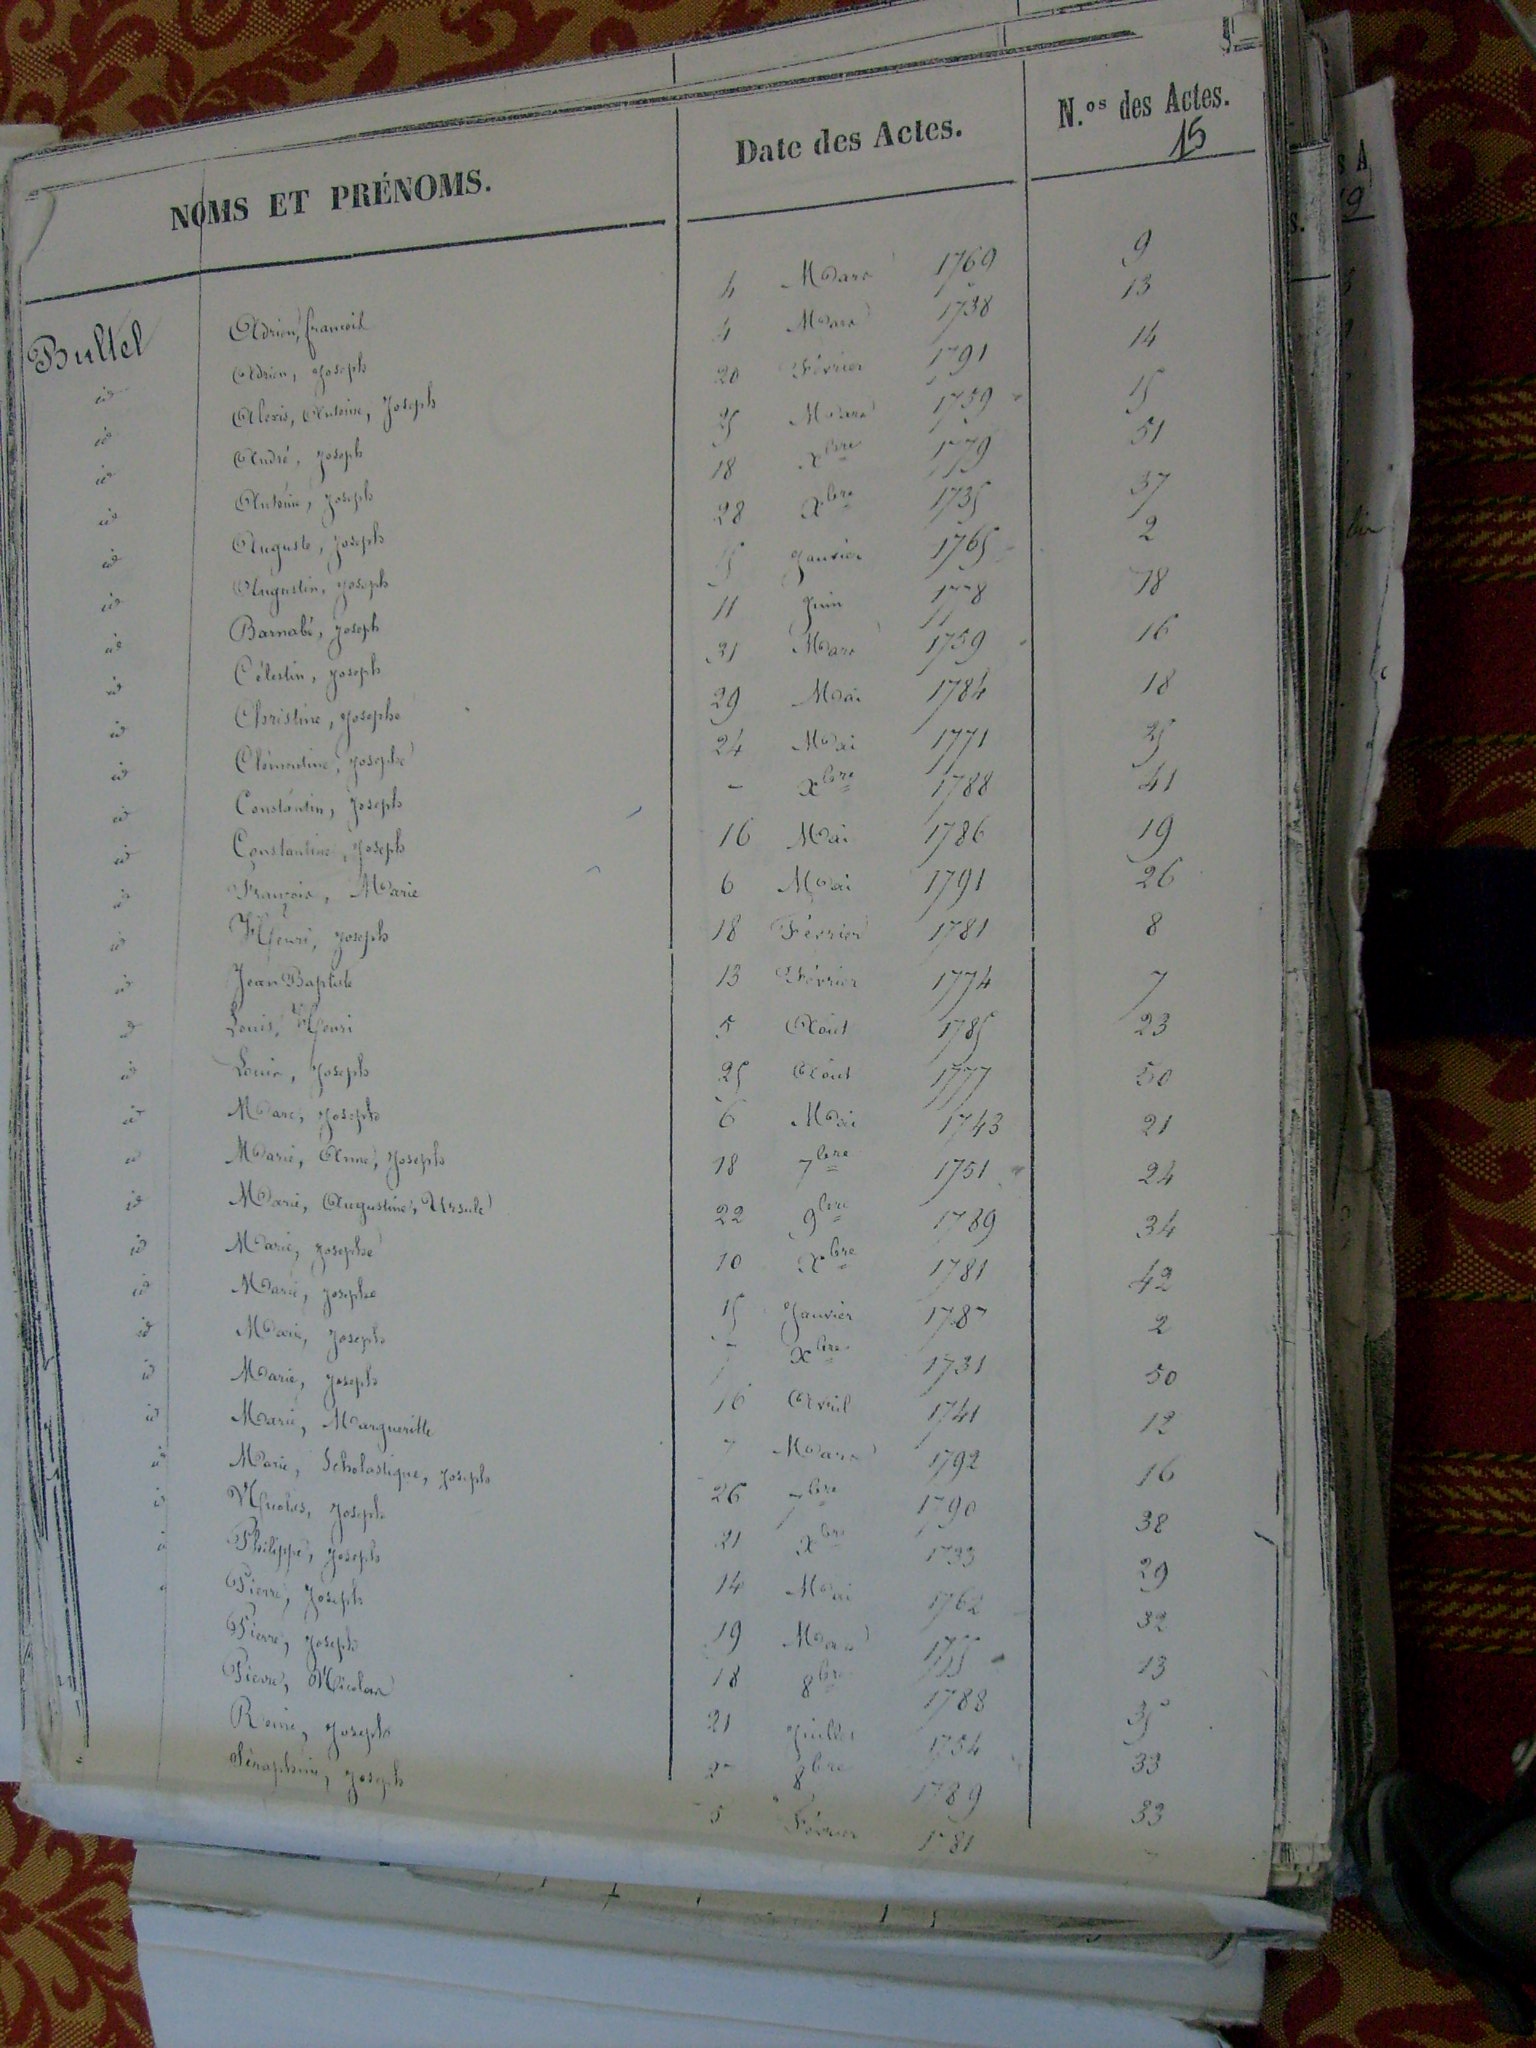 NOMS ET PRÉNOMS. Date des Actes. N.os des Actes.
15
Bultel Adrien, françois 4 Mars 1769 9
id Adrien, Joseph 4 Mars 1738 13
id Alexis, Antoine, Joseph 20 Février 1791 14
id André, Joseph 25 Mars 1759 15
id Antoine, Joseph 18 Xbre 1779 51
id Auguste, Joseph 28 Xbre 1735 37
id Augustin, Joseph 15 Janvier 1765 2
id Barnabé, Joseph 11 Juin 1778 18
id Célestin, Joseph 31 Mars 1759 16
id Christine, Josephe 29 Mai 1784 18
id Clémentine, Josephe 24 Mai 1771 25
id Constantin, Joseph - Xbre 1788 41
id Constantine, Joseph 16 Mai 1786 19
id François, Marie 6 Mai 1791 26
id Henri, Joseph 18 Février 1781 8
id Jean Baptiste 13 Février 1774 7
id Louis, Henri 5 Août 1785 23
id Louis, Joseph 25 Août 1777 50
id Marc, Joseph 6 Mai 1743 21
id Marie, Anne, Joseph 18 7bre 1751 24
id Marie, Augustine, Ursule 22 9bre 1789 34
id Marie, Josephe 10 Xbre 1781 42
id Marie, Josephe 15 Janvier 1787 2
id Marie, Joseph 7 Xbre 1731 50
id Marie, Joseph 16 Avril 1741 12
id Marie, Margueritte 7 Mars 1792 16
id Marie, Scholastique, Joseph 26 7bre 1790 38
id Nicolas, Joseph 21 Xbre 1733 29
id Philippe, Joseph 14 Mai 1762 32
Pierre, Joseph 19 Mars 1755 13
Pierre, Joseph 18 8bre 1788 35
Pierre, Nicolas 21 Juillet 1754 33
Reine, Joseph 8bre 1789 33
Séraphine, Joseph 5 Février 1781